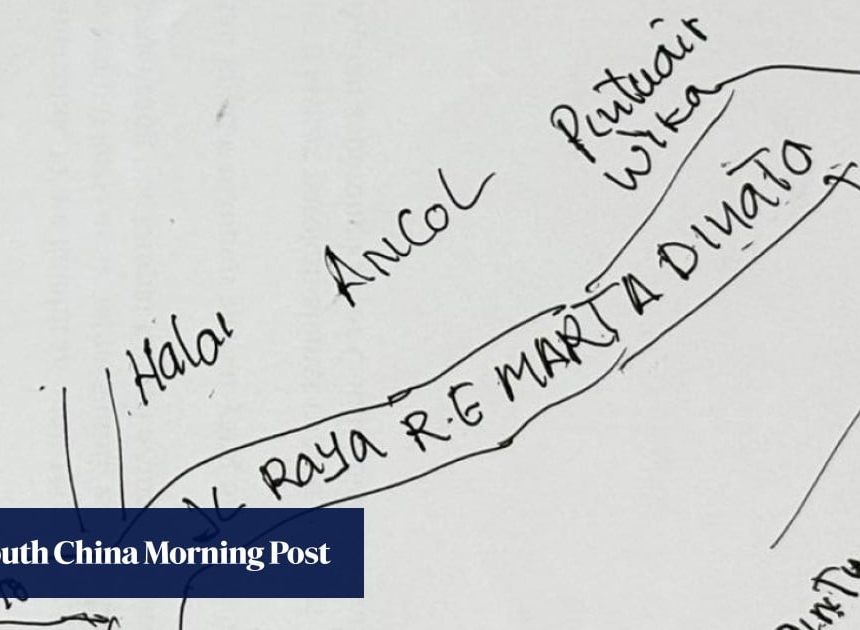 Pintuair
Wika
ANCOL
Halai
JL RAYA R.E MARTADINATA
South China Morning Post